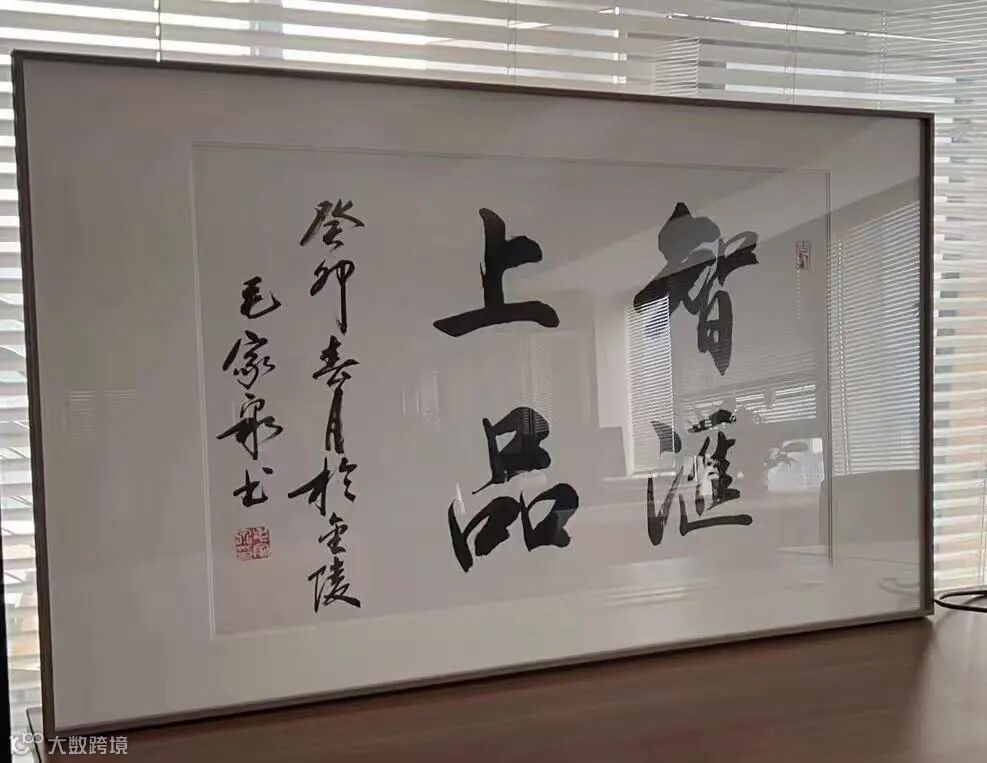 智匯
上品
癸卯春月於金陵
毛家泉书
大数跨境